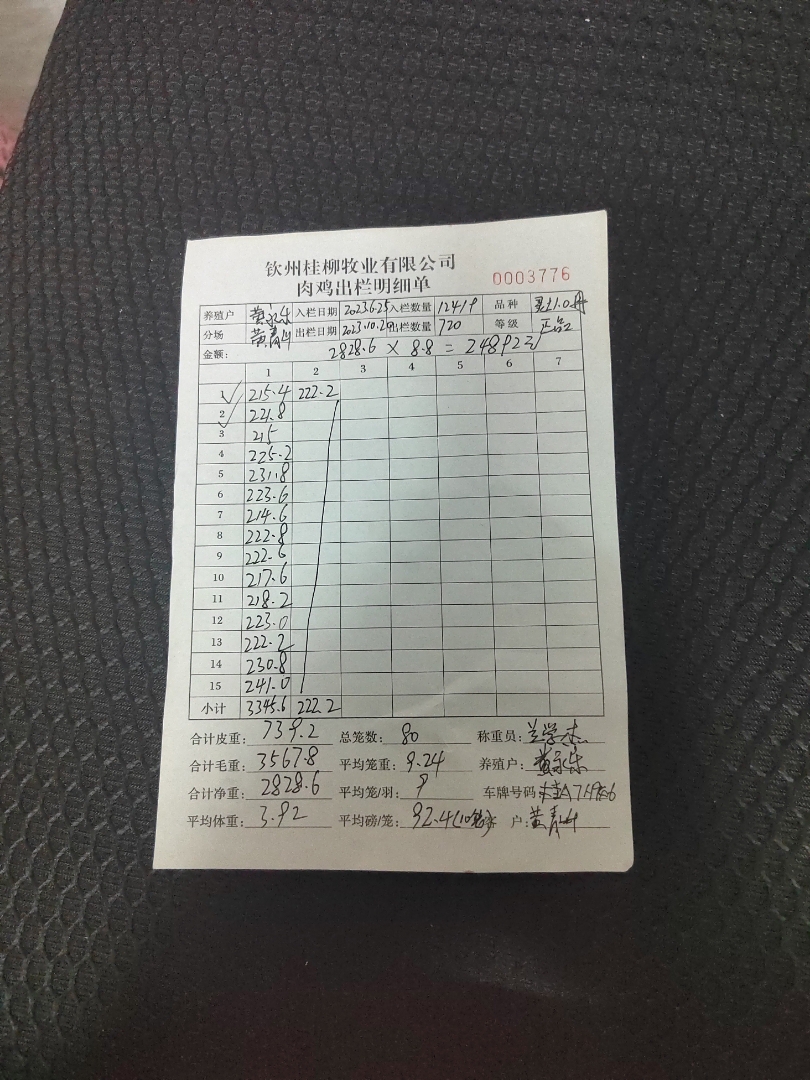 钦州桂柳牧业有限公司
肉鸡出栏明细单
0003776
养殖户 黄永乐 入栏日期 2023.6.25 入栏数量 12419 品种
分场 黄青山 出栏日期 2023.10.2 出栏数量 720 等级 正品
金额： 2828.6 × 8.8 = 24892元
1 2 3 4 5 6 7
1 215.4 222.2
2 221.8
3 215
4 225.2
5 231.8
6 223.6
7 214.6
8 222.8
9 222.6
10 217.6
11 218.2
12 223.0
13 222.2
14 230.8
15 241.0
小计 3345.6 222.2
合计皮重： 739.2 总笼数： 80 称重员： 兰学杰
合计毛重： 3567.8 平均笼重： 9.24 养殖户： 黄永乐
合计净重： 2828.6 平均笼/羽： 9 车牌号码：
平均体重： 3.92 平均磅/笼： 92.4(10笼) 户： 黄青山